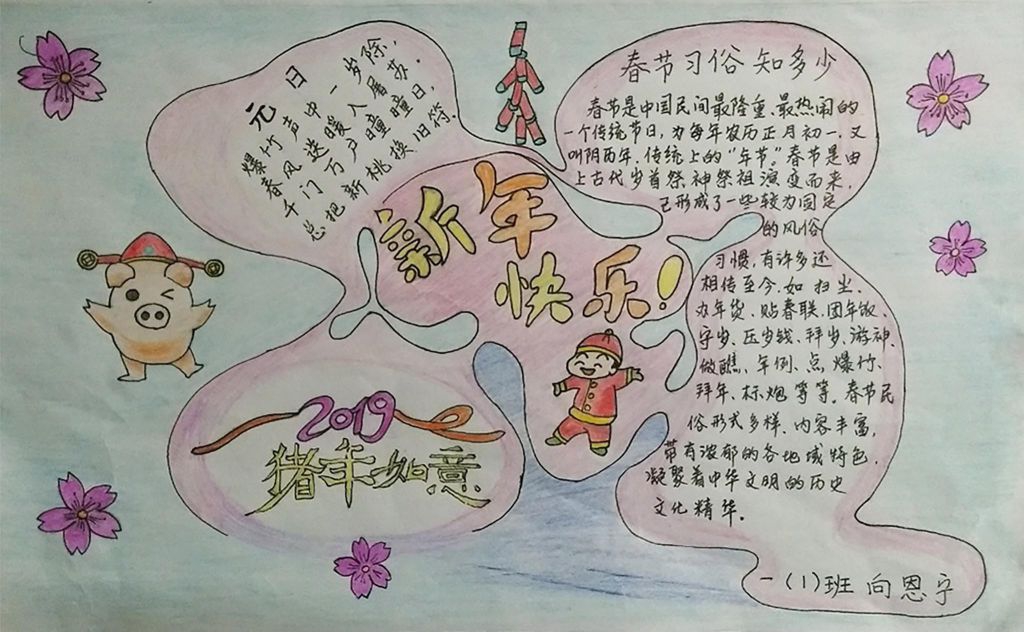 元日
爆竹声中一岁除，
春风送暖入屠苏.
千门万户曈曈日，
总把新桃换旧符.
新年
快乐！
2019
猪年如意
春节习俗知多少
春节是中国民间最隆重、最热闹的
一个传统节日，为每年农历正月初一，又
叫阴历年，传统上的“年节”。春节是由
上古代岁首祭神祭祖演变而来，
已形成了一些较为固定
的风俗
习惯，有许多还
相传至今，如扫尘、
办年货、贴春联、团年饭、
守岁、压岁钱、拜岁、游神、
做醮、年例、点爆竹、
拜年、标炮等等。春节民
俗形式多样、内容丰富，
带有浓郁的各地域特色，
凝聚着中华文明的历史
文化精华。
一（1）班 向恩宁